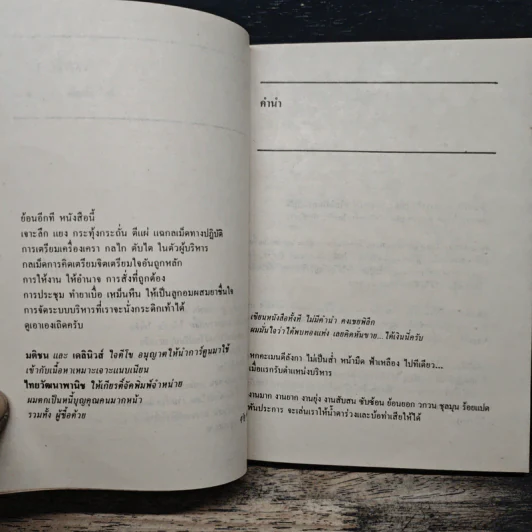 ย้อนอีกที หนังสือนี้
เจาะลึก แยง กระทุ้งกระถั่น ตีแผ่ แฉกลเม็ดทางปฏิบัติ
การเตรียมเครื่องเครา กลไก ตับไต ในตัวผู้บริหาร
กลเม็ดการคิดเตรียมจิตเตรียมใจอันถูกหลัก
การให้งาน ให้อำนาจ การสั่งที่ถูกต้อง
การประชุม ทำยาเบื่อ เหม็นหืน ให้เป็นลูกอมผสมยาชื่นใจ
การจัดระบบบริหารที่เราจะนั่งกระดิกเท้าได้
ดูเอาเองเถิดครับ
มติชน และ เดลินิวส์ ใจดีโข อนุญาตให้นำการ์ตูนมาใช้
เข้ากับเนื้อหาเหมาะเจาะแนบเนียน
ไทยวัฒนาพานิช ให้เกียรติ์จัดพิมพ์จำหน่าย
ผมตกเป็นหนี้บุญคุณคนมากหน้า
รวมทั้ง ผู้ซื้อด้วย
คำนำ
เขียนหนังสือทั้งที ไม่มีคำนำ คงเชยพิลึก
ผมมั่นใจว่าใต้พบทองแท่ง เลยคิดหันขาย...ให้เงินนี่ครับ
หกคะเมนตีลังกา ไม่เป็นส่ำ หน้ามืด ฟ้าเหลือง ไปทีเดียว...
เมื่อแรกรับตำแหน่งบริหาร
งานมาก งานยาก งานยุ่ง งานสับสน ซับซ้อน ย้อนยอก วกวน ชุลมุน ร้อยแปด
พันประการ จะเล่นเราให้น้ำตาร่วงและบ้อท่าเสียให้ได้